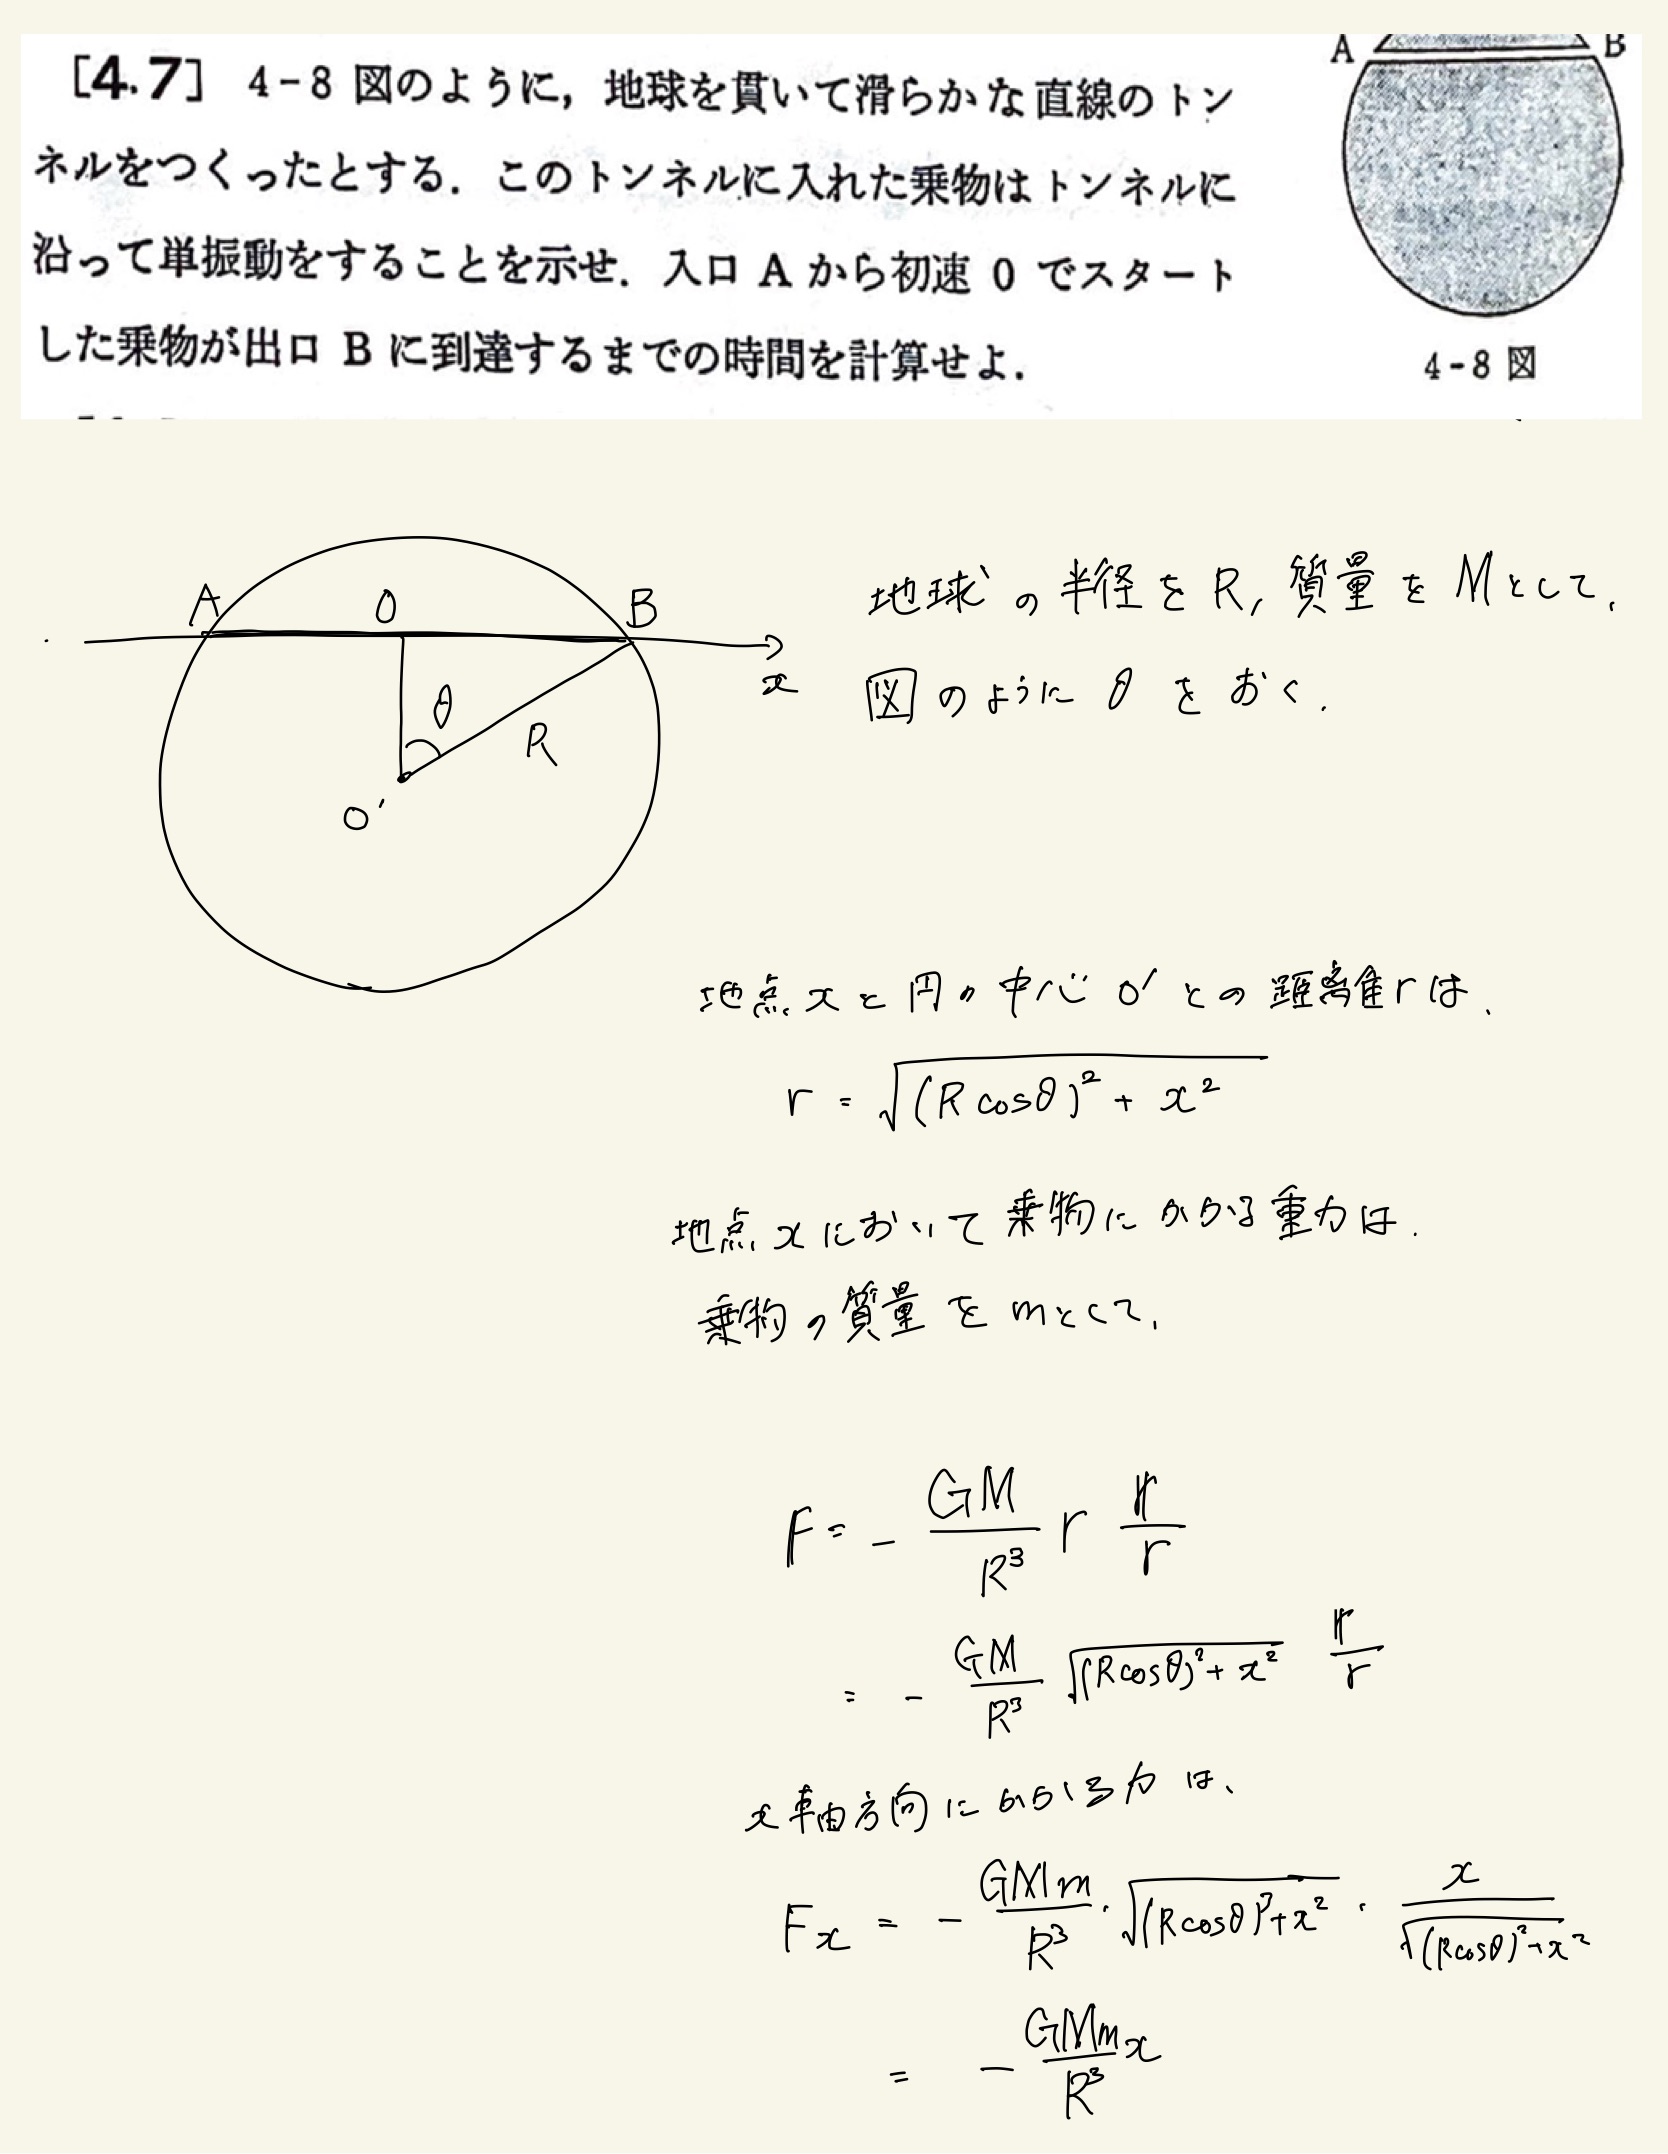 [4.7] 4-8 図のように，地球を貫いて滑らかな直線のトン
ネルをつくったとする．このトンネルに入れた乗物はトンネルに
沿って単振動をすることを示せ．入口 A から初速 0 でスタート
した乗物が出口 B に到達するまでの時間を計算せよ．
A B
4-8 図
A O B
x
θ
R
O'
地球の半径を R, 質量を M として、
図のように θ を おく．
地点 x と 円の中心 O' との距離 r は、
r = √((R cosθ)² + x²)
地点 x において乗物にかかる重力は、
乗物の質量を m として、
F = - GM/R³ r 𝕣/r
= - GM/R³ √((Rcosθ)² + x²) 𝕣/r
x 軸方向にかかる力は、
Fx = - GMm/R³ · √((Rcosθ)² + x²) · x/√((Rcosθ)² + x²)
= - GMm/R³ x